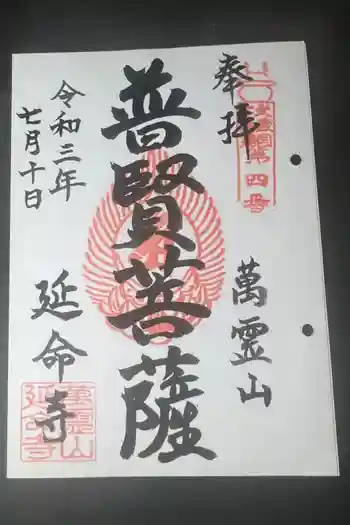 奉拝
萬霊山
普賢菩薩
令和三年
七月十日
延命寺
第四番
萬霊山
延命寺